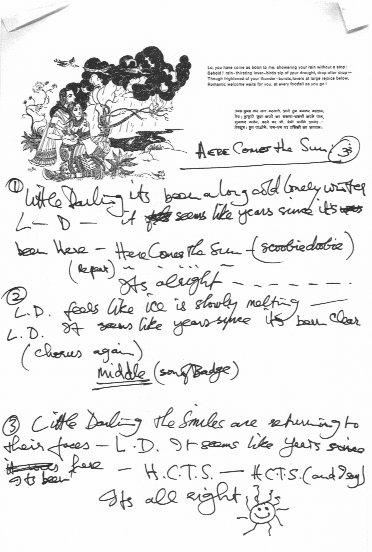 Lo, you have come as boon to me, showering your rain without a stop:
Behold! rain-thirsting lover-birds sip of your draught, drop after drop—
Though frightened of your thunder-bursts, lovers at large rejoice behold.
Romantic welcome waits for you, at every footfall as you go!
HERE COMES THE SUN.
① Little Darling its been a long cold lonely winter
L — D — it seems like years since it's
been Here — Here Comes the Sun — (scoobie dobie)
(Repeat)
Its alright
②
L.D. feels like ice is slowly melting —
L.D. It seems like years since its been clear
(chorus again)
Middle (song Badge)
③ Little Darling the Smiles are returning to
their faces — L.D. It seems like years since
Its been here — H.C.T.S. — H.C.T.S. (and I say)
Its all right